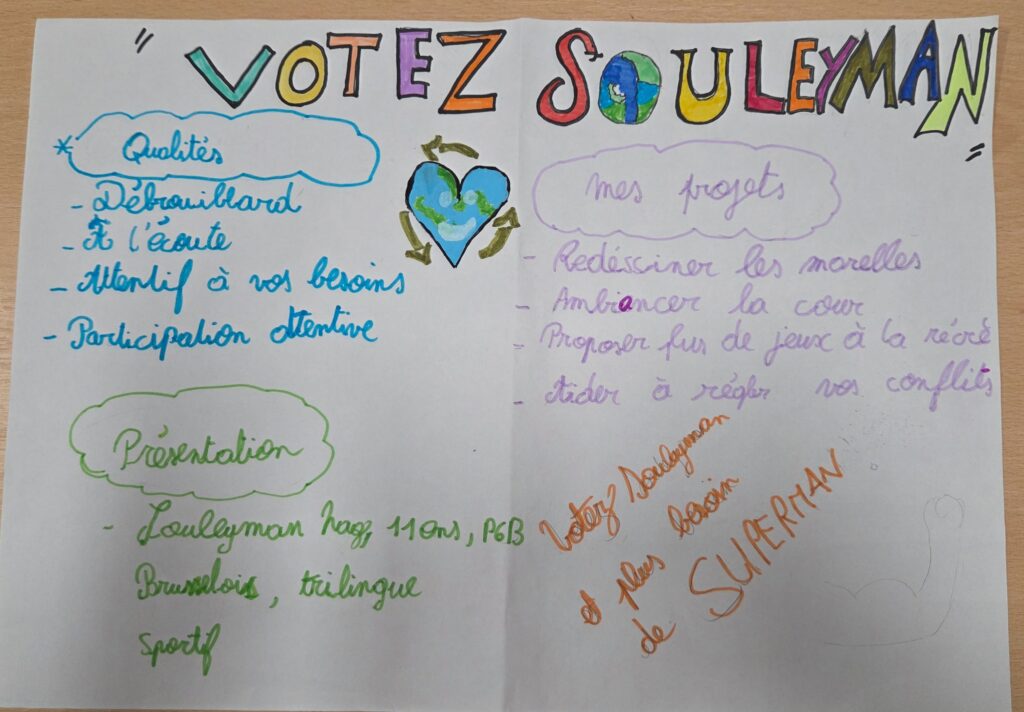 " VOTEZ SOULEYMAN "
* Qualités
- Débrouillard
- À l'écoute
- Attentif à vos besoins
- Participation attentive
Présentation
- Souleyman 11 ans, P6B
Bruxellois, trilingue
sportif
mes projets
- Redéssiner les marelles
- Ambiancer la cour
- Proposer plus de jeux à la récré
- Aider à régler vos conflits
Votez Souleyman
et plus besoin
de SUPERMAN